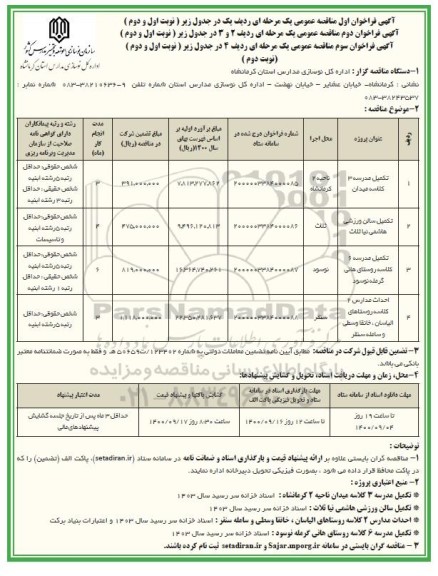 آگهی فراخوان اول مناقصه عمومی یک مرحله ای ردیف یک در جدول زیر ( نوبت اول و دوم )
آگهی فراخوان دوم مناقصه عمومی یک مرحله ای ردیف ۲ و ۳ در جدول زیر ( نوبت اول و دوم )
آگهی فراخوان سوم مناقصه عمومی یک مرحله ای ردیف ۴ در جدول زیر ( نوبت اول و دوم )
(نوبت دوم )
اداره کل نوسازی مدارس استان کرمانشاه
۱- دستگاه مناقصه گزار : اداره کل نوسازی مدارس استان کرمانشاه
نشانی : کرمانشاه- خیابان عشایر - خیابان نهضت – اداره کل نوسازی مدارس استان شماره تلفن
۲- موضوع مناقصه :
ردیف
عنوان پروژه
محل اجرا
شماره فراخوان درج شده در سامانه ستاد
مبلغ برآورد اولیه بر اساس فهرست بهای سال ۱۴۰۰(ریال)
مبلغ تضمین شرکت در مناقصه (ریال)
مدت انجام کار (ماه)
رشته و رتبه پیمانکاران دارای گواهی نامه صلاحیت از سازمان مدیریت وبرنامه ریزی
۱
تکمیل مدرسه ۳ کلاسه میدان
ناحیه ۲ کرمانشاه
۳۹۱,۰۰۰,۰۰۰
۳
شخص حقوقی، حداقل رتبه۵ رشته ابنیه
شخص حقیقی، حداقل رتبه۳ رشته ابنیه
۲
تکمیل سالن ورزشی هاشمی نیا ثلاث
ثلاث
۴۷۵,۰۰۰,۰۰۰
۴
شخص حقوقی،حداقل رتبه۵ رشته ابنیه و تاسیسات
۳
تکمیل مدرسه ۶ کلاسه روستای هانی گرمله نوسود
نوسود
۸۱۹,۰۰۰,۰۰۰
۶
شخص حقوقی،حداقل رتبه۵ رشته ابنیه
شخص حقیقی، حداقل رتبه۱ رشته ابنیه
۴
احداث مدارس ۲ کلاسه روستاهای الیاسان ، خانقا وسطی و ساطه سنقر
سنقر
شخص حقوقی،حداقل رتبه۵ رشته ابنیه
۳- تضمین قابل قبول شرکت در مناقصه: مطابق آیین نامه تضمین معاملات دولتی به شماره
بانکی می باشد.
۴- محل، زمان و مهلت دریافت اسناد، تحویل و گشایش پیشنهادها:
مهلت دانلود اسناد از سامانه ستاد
مهلت بارگذاری اسناد در سامانه ستاد و تحویل فیزیکی پاکت الف
گشایش پاکتها و پیشنهاد قیمت
مدت اعتبار پیشنهاد
تا ساعت ۱۹ روز ۱۴۰۰/۰۹/۰۴
تا ساعت ۱۲ روز ۱۴۰۰/۰۹/۱۶
ساعت ۸:۳۰ روز ۱۴۰۰/۰۹/۱۷
حداقل ۳ماه پس از تاریخ جلسه گشایش پیشنهادهای مالی
توضیحات :
۱- مناقصه گران بایستی علاوه بر ارائه پیشنهاد قیمت و بارگذاری اسناد و ضمانت نامه در سامانه ستاد (setadiran.ir)، پاکت الف (تضمین) را که
در پاکت محافظ قرار داده می شود ، بصورت فیزیکی تحویل دبیرخانه اداره نمایند.
۲- منبع اعتباری پروژه :
* تکمیل مدرسه ۳ کلاسه میدان ناحیه ۲ کرمانشاه : اسناد خزانه سر رسید سال ۱۴۰۳
* تکمیل سالن ورزشی هاشمی نیا ثلاث : اسناد خزانه سر رسید سال ۱۴۰۳
* احداث مدارس ۲ کلاسه روستاهای الیاسان ، خانقا وسطی و ساطه سنقر : اسناد خزانه سر رسید سال ۱۴۰۳ و اعتبارات بنیاد برکت
* تکمیل مدرسه ۶ کلاسه روستای هانی گرمله نوسود : اسناد خزانه سر رسید سال ۱۴۰۳
۳ – مناقصه گران بایستی در سامانه Sajar.mporg.ir و setadiran.ir ثبت نام کرده باشند.